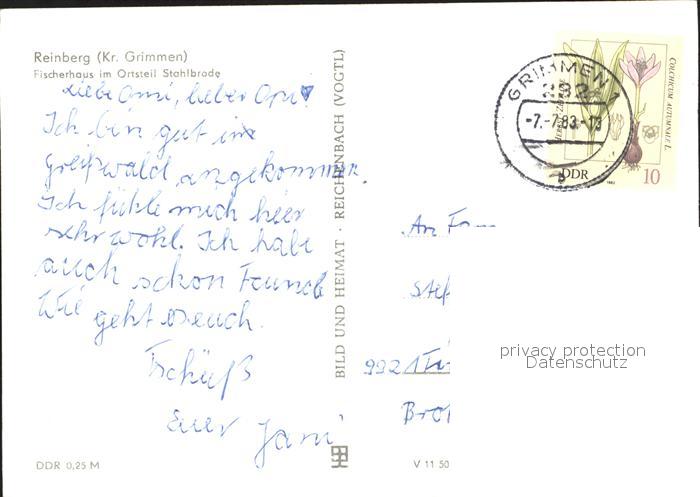 Reinberg (Kr. Grimmen)
Fischerhaus im Ortsteil Stahlbrode
Liebe Omi, lieber Opi
Ich bin gut in
Greifswald angekommen.
Ich fühle mich hier
sehr wohl. Ich habe
auch schon Freunde
Wie geht es euch.
Tschüß
Euer Jani
DDR 0,25 M
BILD UND HEIMAT · REICHENBACH (VOGTL)
V 11 50
GRIMMEN 1
232
-7.-7.83.-18
b
COLCHICUM AUTUMNALE L.
DDR
1982
10
An Fam
Stef
992
Bro
privacy protection
Datenschutz